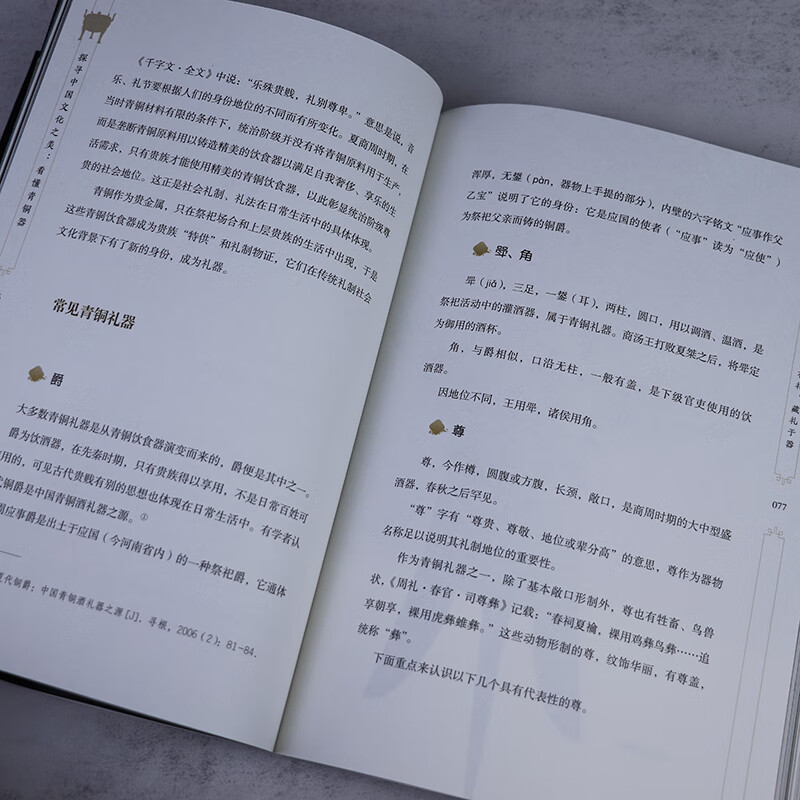 探寻中国文化之美：看懂青铜器
《千字文·全文》中说：“乐殊贵贱，礼别尊卑。”意思是说，音
乐、礼节要根据人们的身份地位的不同而有所变化。夏商周时期，在
当时青铜材料有限的条件下，统治阶级并没有将青铜原料用于生产，
而是垄断青铜原料用以铸造精美的饮食器以满足自我奢侈、享乐的生
活需求，只有贵族才能使用精美的青铜饮食器，以此彰显统治阶级尊
贵的社会地位。这正是社会礼制、礼法在日常生活中的具体体现。
青铜作为贵金属，只在祭祀场合和上层贵族的生活中出现，于是
这些青铜饮食器成为贵族“特供”和礼制物证，它们在传统礼制社会
文化背景下有了新的身份，成为礼器。
常见青铜礼器
爵
大多数青铜礼器是从青铜饮食器演变而来的，爵便是其中之一。
爵为饮酒器，在先秦时期，只有贵族得以享用，不是日常百姓可
用的，可见古代贵贱有别的思想也体现在日常生活中。有学者认
铜爵是中国青铜酒礼器之源。①
应事爵是出土于应国（今河南省内）的一种祭祀爵，它通体
代铜爵：中国青铜酒礼器之源[J]. 寻根，2006(2)：81-84.
浑厚，无鋬（pàn，器物上手提的部分），内壁的六字铭文“应事作父
乙宝”说明了它的身份：它是应国的使者（“应事”读为“应使”）
为祭祀父亲而铸的铜爵。
斝、角
斝（jiǎ），三足，一鋬（耳），两柱，圆口，用以调酒、温酒，是
祭祀活动中的灌酒器，属于青铜礼器。商汤王打败夏桀之后，将斝定
为御用的酒杯。
角，与爵相似，口沿无柱，一般有盖，是下级官吏使用的饮
酒器。
因地位不同，王用斝，诸侯用角。
尊
尊，今作樽，圆腹或方腹，长颈，敞口，是商周时期的大中型盛
酒器，春秋之后罕见。
“尊”字有“尊贵、尊敬、地位或辈分高”的意思，尊作为器物
名称足以说明其礼制地位的重要性。
作为青铜礼器之一，除了基本敞口形制外，尊也有牲畜、鸟兽
状，《周礼·春官·司尊彝》记载：“春祠夏禴，裸用鸡彝鸟彝……追
享朝享，裸用虎彝蜼彝。”这些动物形制的尊，纹饰华丽，有尊盖，
统称“彝”。
下面重点来认识以下几个具有代表性的尊。
藏礼于器
077